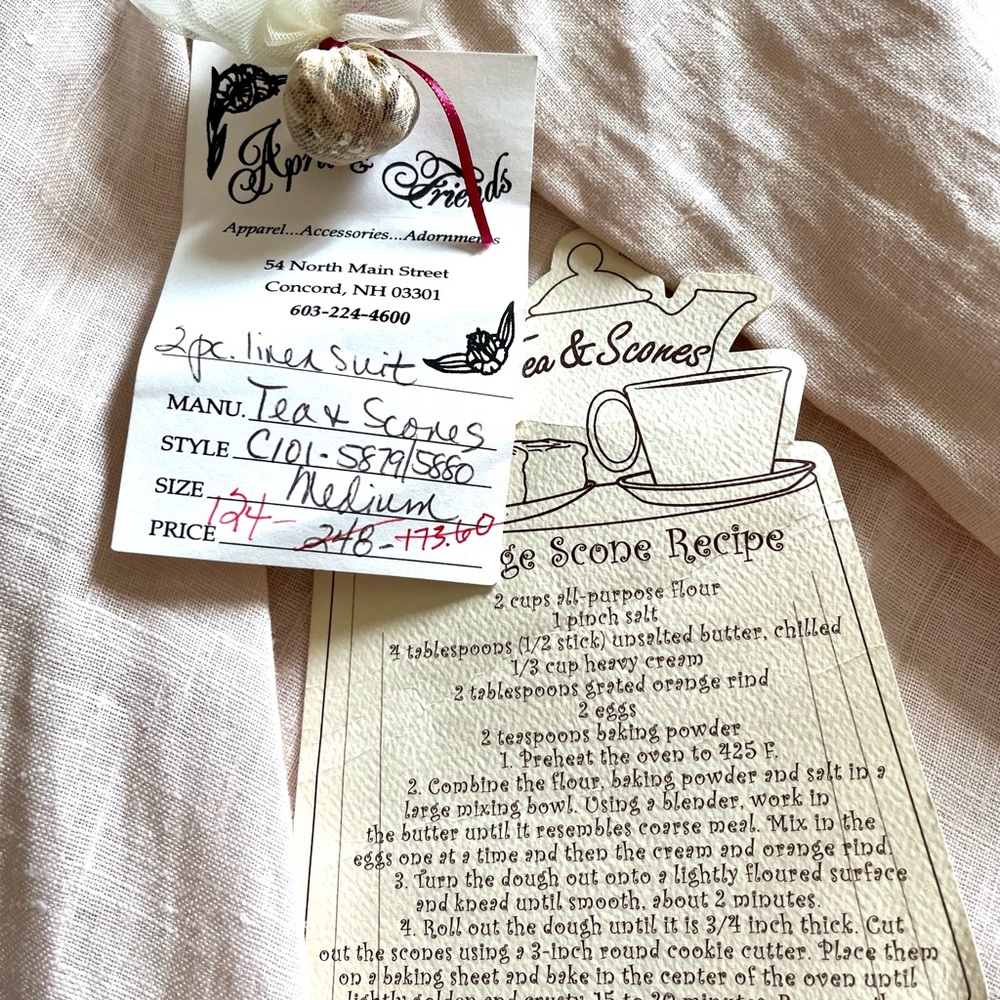 & Friends
Apparel...Accessories...Adornments
54 North Main Street
Concord, NH 03301
603-224-4600
2 pc. linen suit
MANU. Tea & Scones
STYLE C101-5879/5880
SIZE Medium
PRICE 124- 248- 173.60
ea & Scones
ge Scone Recipe
2 cups all-purpose flour
1 pinch salt
4 tablespoons (1/2 stick) unsalted butter, chilled
1/3 cup heavy cream
2 tablespoons grated orange rind
2 eggs
2 teaspoons baking powder
1. Preheat the oven to 425 F.
2. Combine the flour, baking powder and salt in a
large mixing bowl. Using a blender, work in
the butter until it resembles coarse meal. Mix in the
eggs one at a time and then the cream and orange rind.
3. Turn the dough out onto a lightly floured surface
and knead until smooth, about 2 minutes.
4. Roll out the dough until it is 3/4 inch thick. Cut
out the scones using a 3-inch round cookie cutter. Place them
on a baking sheet and bake in the center of the oven until
lightly golden and crusty, 15 to 20 minutes.